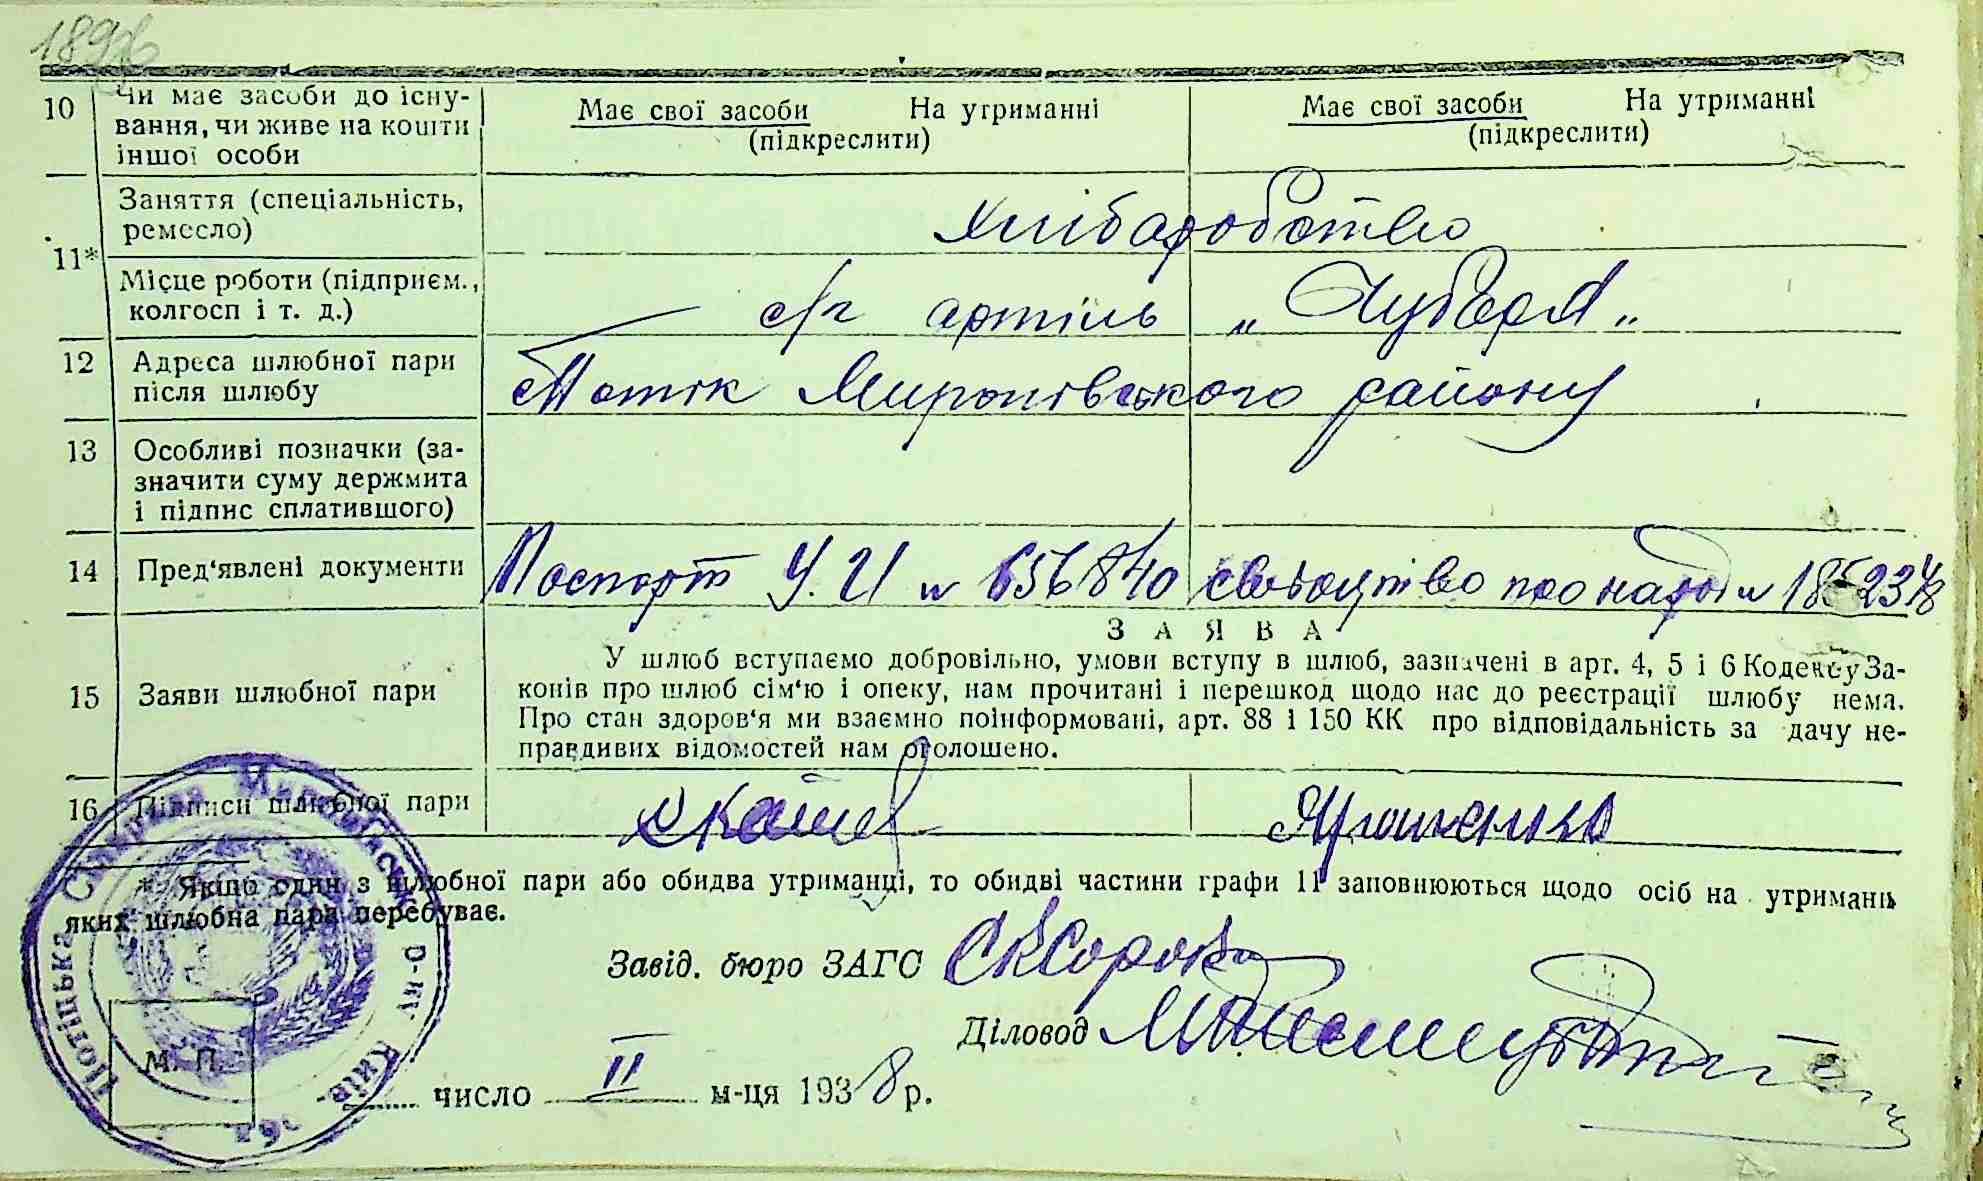 10 Чи має засоби до існу-
вання, чи живе на кошти
іншої особи
Має свої засоби На утриманні
(підкреслити)
Має свої засоби На утриманні
(підкреслити)
11* Заняття (спеціальність,
ремесло)
хліборобство
Місце роботи (підприєм.,
колгосп і т. д.)
с/г артіль „Чубаря„
12 Адреса шлюбної пари
після шлюбу
Потік Миронівського району
13 Особливі позначки (за-
значити суму держмита
і підпис сплатившого)
14 Пред'явлені документи
Паспорт У.И № 656840 про народ №
15 Заяви шлюбної пари
ЗАЯВА
У шлюб вступаємо добровільно, умови вступу в шлюб, зазначені в арт. 4, 5 і 6 Кодексу За-
конів про шлюб сім'ю і опеку, нам прочитані і перешкод щодо нас до реєстрації шлюбу нема.
Про стан здоров'я ми взаємно поінформовані, арт. 88 і 150 КК про відповідальність за дачу не-
правдивих відомостей нам оголошено.
16 Підписи шлюбної пари
* Якщо один з шлюбної пари або обидва утриманці, то обидві частини графи 11 заповнюються щодо осіб на утриманні
яких шлюбна пара перебуває.
Завід. бюро ЗАГС
Діловод
М. П.
число II м-ця 1938 р.
Потіцька Сільрада Миронівськ. р-ну Київ. обл.